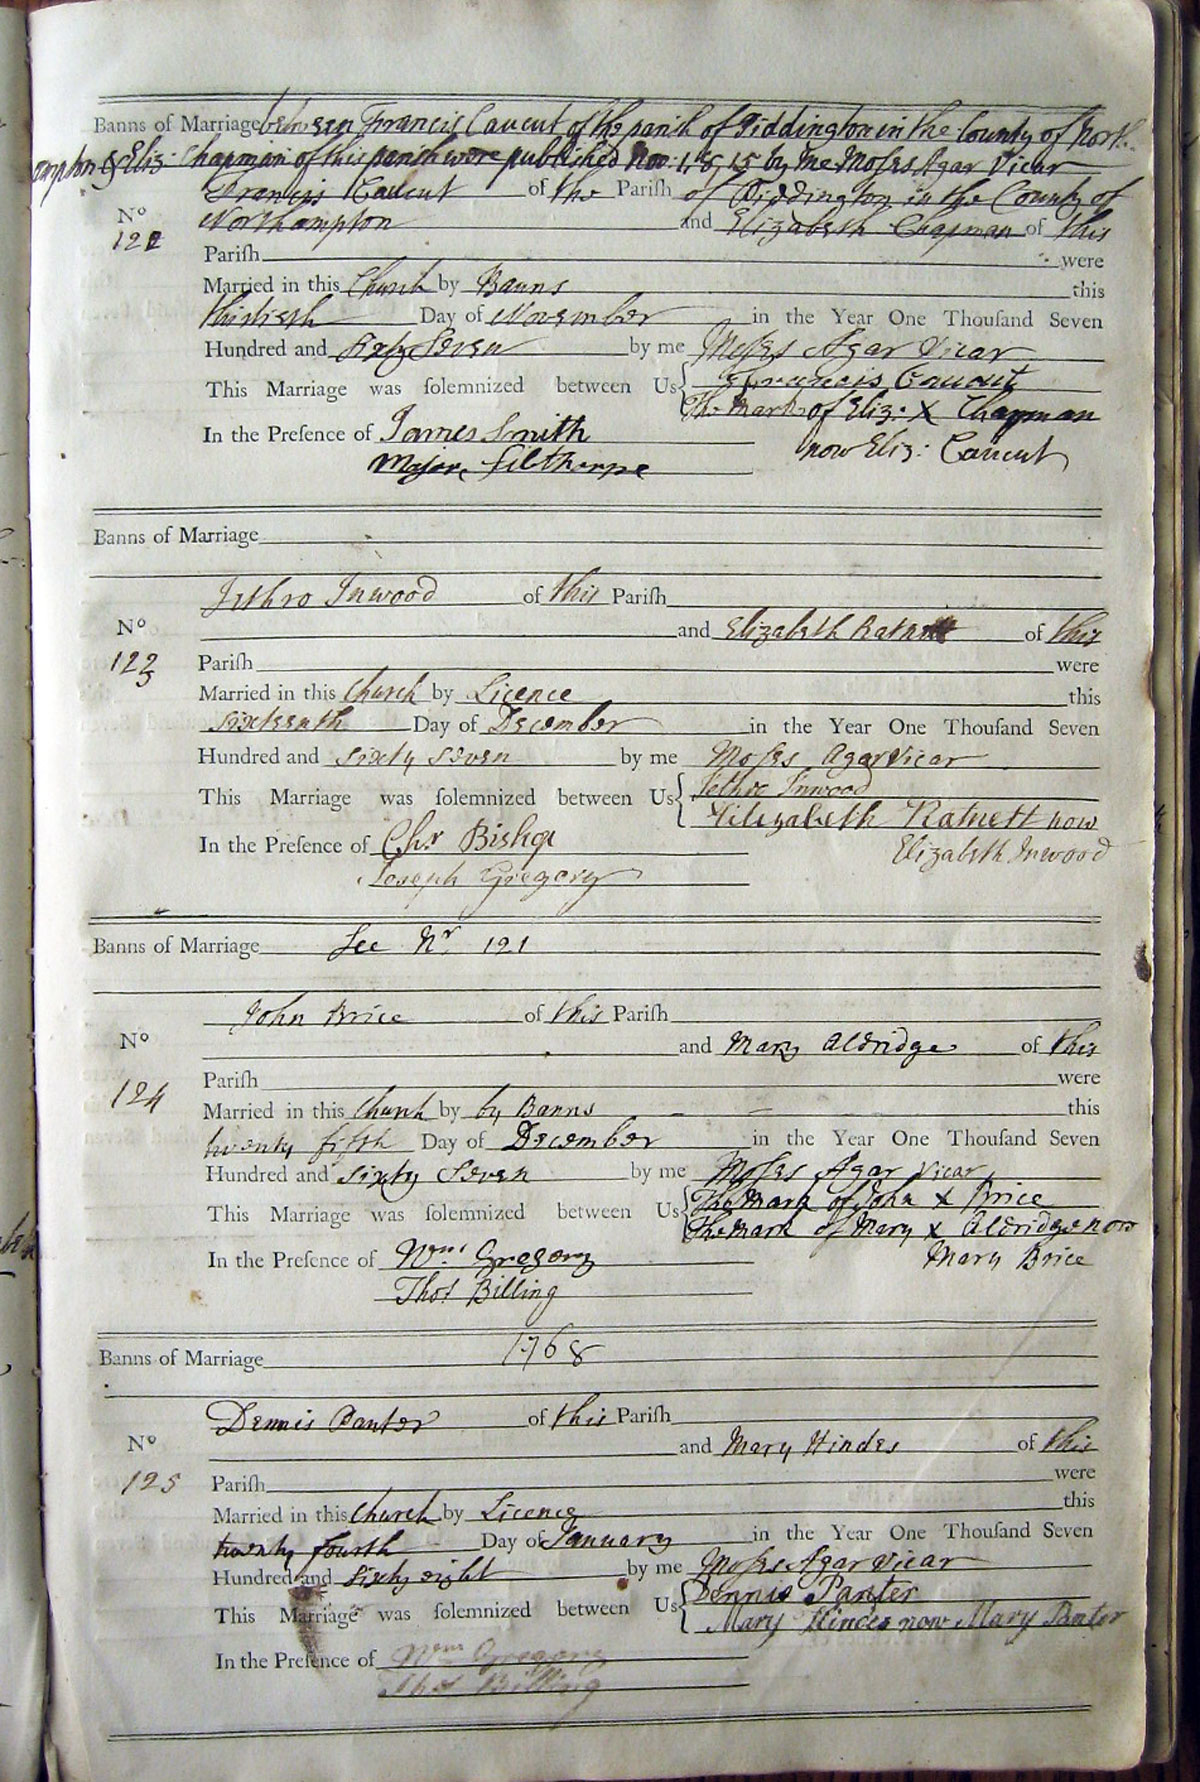 Banns of Marriage between Francis Caucut of the parish of Piddington in the County of North
ampton & Eliz: Chapman of this parish were published Nov: 1, 8, 15 by me Moses Agar Vicar
Francis Caucut of the Pariſh of Piddington in the County of
No
122 Northampton and Elizabeth Chapman of this
Pariſh were
Married in this Church by Banns this
thirtieth Day of November in the Year One Thouſand Seven
Hundred and Sixty Seven by me Moses Agar Vicar
This Marriage was ſolemnized between Us { Francis Caucut
The Mark of Eliz: X Chapman
now Eliz: Caucut
In the Preſence of James Smith
Major Silthorpe
Banns of Marriage
Jethro Inwood of this Pariſh
No
and Elizabeth Ratnett of this
123 Pariſh were
Married in this Church by Licence this
sixteenth Day of December in the Year One Thouſand Seven
Hundred and sixty seven by me Moses Agar Vicar
This Marriage was ſolemnized between Us { Jethro Inwood
Elizabeth Ratnett now
Elizabeth Inwood
In the Preſence of Chr Bishop
Joseph Gregory
Banns of Marriage See Nr 121
John Brice of this Pariſh
No
and Mary Aldridge of this
124 Pariſh were
Married in this Church by by Banns this
twenty fifth Day of December in the Year One Thouſand Seven
Hundred and sixty seven by me Moses Agar Vicar
This Marriage was ſolemnized between Us { The Mark of John X Brice
The Mark of Mary X Aldridge now
Mary Brice
In the Preſence of Wm: Gregory
Thos Billing
Banns of Marriage 1768
Dennis Panter of this Pariſh
No
and Mary Hindes of this
125 Pariſh were
Married in this Church by Licence this
twenty fourth Day of January in the Year One Thouſand Seven
Hundred and sixty eight by me Moses Agar Vicar
This Marriage was ſolemnized between Us { Dennis Panter
Mary Hindes now Mary Panter
In the Preſence of Wm Gregory
Thos Billing